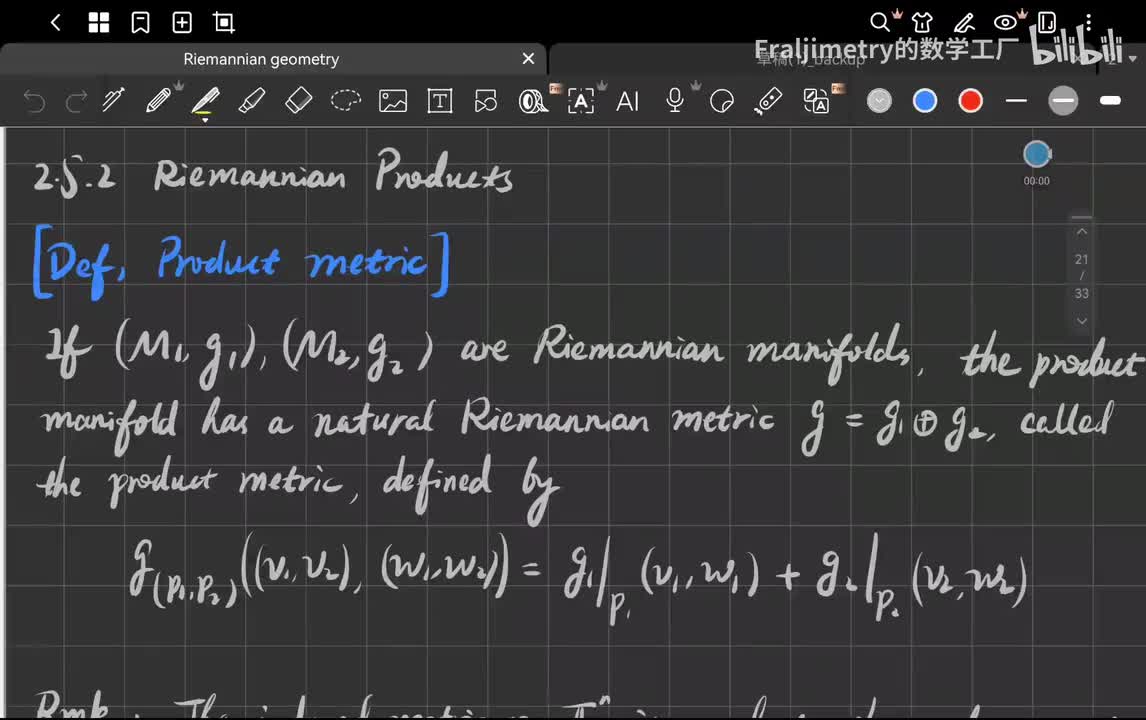 Riemannian geometry
Eraljimetry的数学工厂 bilibili
草稿(1)_backup
T
A
AI
A
00:00
21
/
33
2.5.2 Riemannian Products
[Def, Product metric]
If (M₁, g₁), (M₂, g₂) are Riemannian manifolds, the product
manifold has a natural Riemannian metric g = g₁ ⊕ g₂, called
the product metric, defined by
g_(p₁,p₂) ((v₁, v₂), (w₁, w₂)) = g₁|_p₁ (v₁, w₁) + g₂|_p₂ (v₂, w₂)
Rmk. The induced metric on Tⁿ